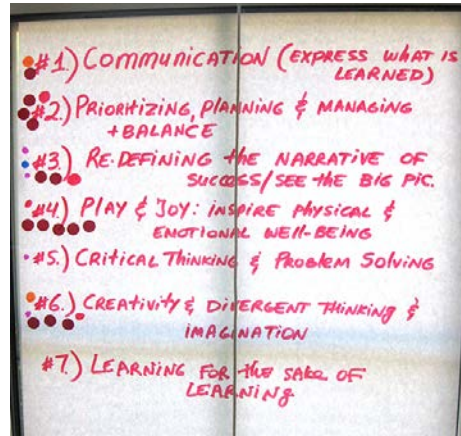 #1.) COMMUNICATION (EXPRESS WHAT IS
LEARNED)
#2.) PRIORITIZING, PLANNING & MANAGING
+BALANCE
#3.) RE-DEFINING the NARRATIVE OF
SUCCESS/SEE the BIG PIC.
#4.) PLAY & JOY: INSPIRE PHYSICAL &
EMOTIONAL WELL-BEING
#5.) CRITICAL THINKING & PROBLEM SOLVING
#6.) CREATIVITY & DIVERGENT THINKING &
IMAGINATION
#7.) LEARNING FOR the SAKE OF
LEARNING